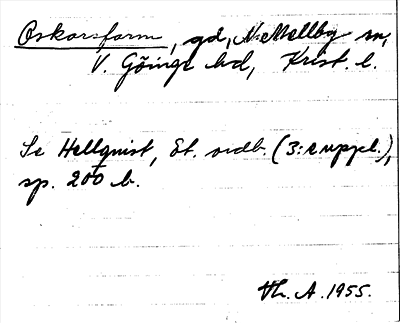 Oskarsfarm, gd, N. Mellby sn,
V. Göinge hd, Krist. l.
Se Hellquist, Et. ordb. (3:e uppl.),
sp. 200 b.
Th. A. 1955.